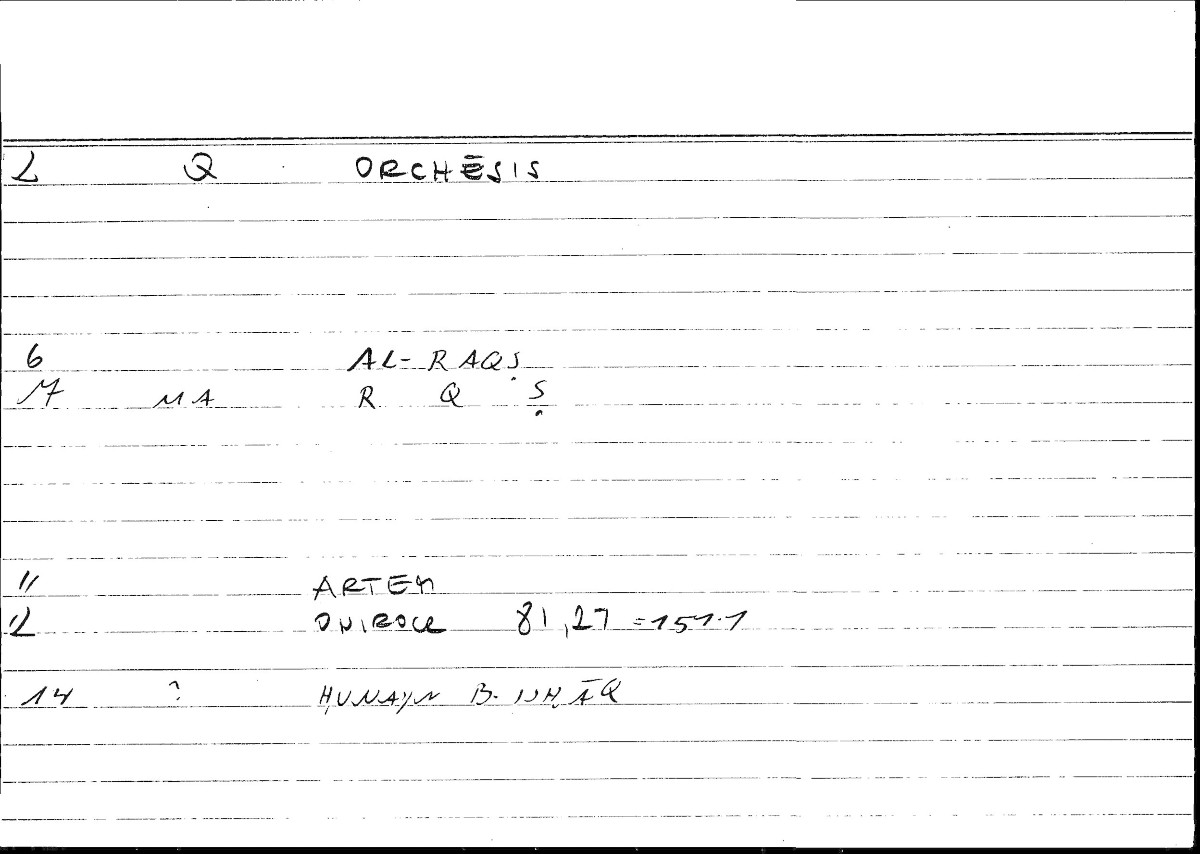 2 Q ORCHĒSIS
6 AL-RAQṢ
7 MA R Q Ṣ
11 ARTEM
12 ONIROCR 81,27 =151.1
14 ? ḤUNAYN B. ISḤĀQ